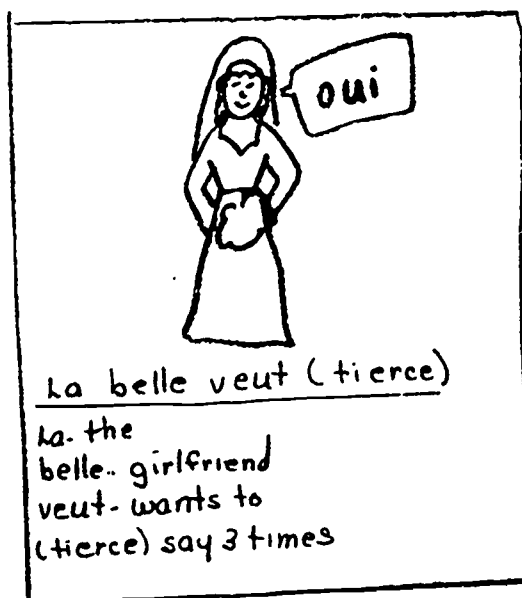 oui
La belle veut (tierce)
La- the
belle-- girlfriend
veut- wants to
(tierce) say 3 times